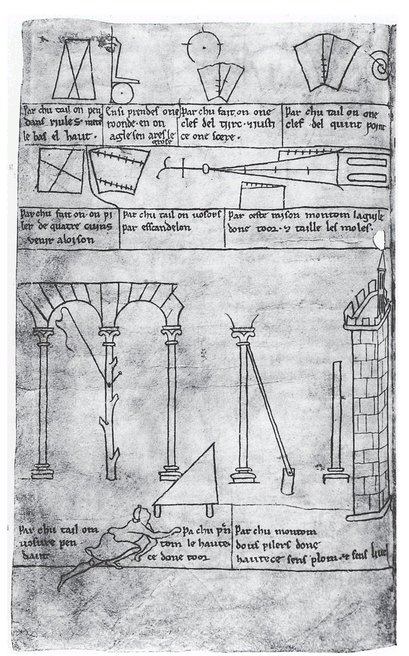 Par chu tail on pen
dans riules mete
le bas el haut.
Ensi prendes one
roonde en on
agle sen ares le
grosse
Par chu fait on one
clef del tierc & justi
ce one scere.
Par chu tail on one
clef del quint point
Par chu fait on on pi
ler de quatre cuins
venir a loison
Par chu tail on vosors
par esscandelon
Par ceste raison montom laguile
done toor & taille les moles.
Par chu tail om
vosure pen
dant
Pa chu prn
tom le hautece
ce done toor
Par chu montom
dous pilers done
hautece sens plom & sens livel